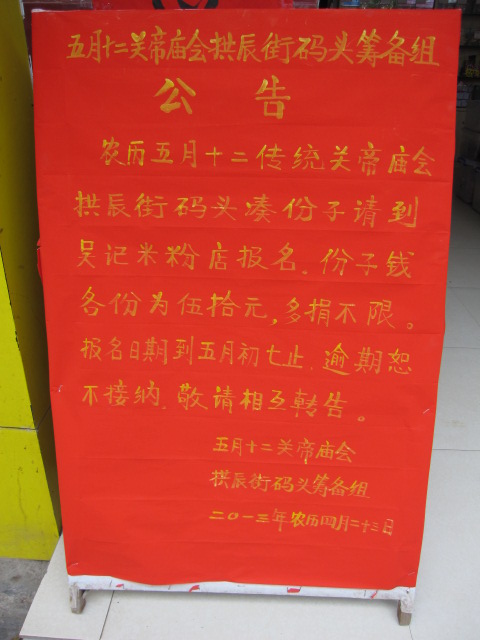 五月十二关帝庙会拱辰街码头筹备组
公告
农历五月十二传统关帝庙会
拱辰街码头凑份子请到
吴记米粉店报名.份子钱
各份为伍拾元,多捐不限。
报名日期到五月初七止.逾期恕
不接纳.敬请相互转告。
五月十二关帝庙会
拱辰街码头筹备组
二〇一三年农历四月二十三日